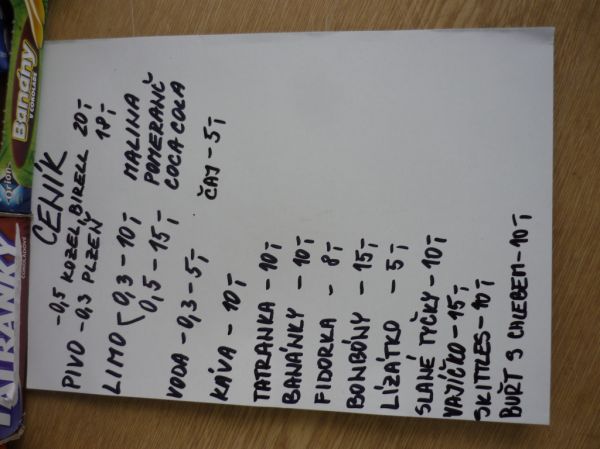 CENÍK
PIVO -0,5 KOZEL, BIRELL 20,-
-0,3 PLZEŇ 18,-
LIMO 0,3 - 10,- MALINA
0,5 - 15,- POMERANČ
COCA COLA
VODA - 0,3 - 5,-
KÁVA - 10,- ČAJ - 5,-
TATRANKA - 10,-
BANÁNKY - 10,-
FIDORKA - 8,-
BONBÓNY - 15,-
LÍZÁTKO - 5,-
SLANÉ TYČKY - 10,-
VAJÍČKO - 15,-
SKITTLES - 10,-
BUŘT S CHLEBEM - 10,-
TATRANKY
ČOKOLÁDOVÉ
Orion
Banány
V ČOKOLÁDĚ